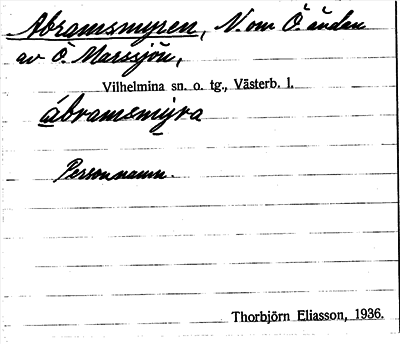 Abramsmyren, N. om Ö. ändan
av Ö. Marssjön,
Vilhelmina sn. o. tg., Västerb. l.
ábramsmýra
Personnamn.
Thorbjörn Eliasson, 1936.